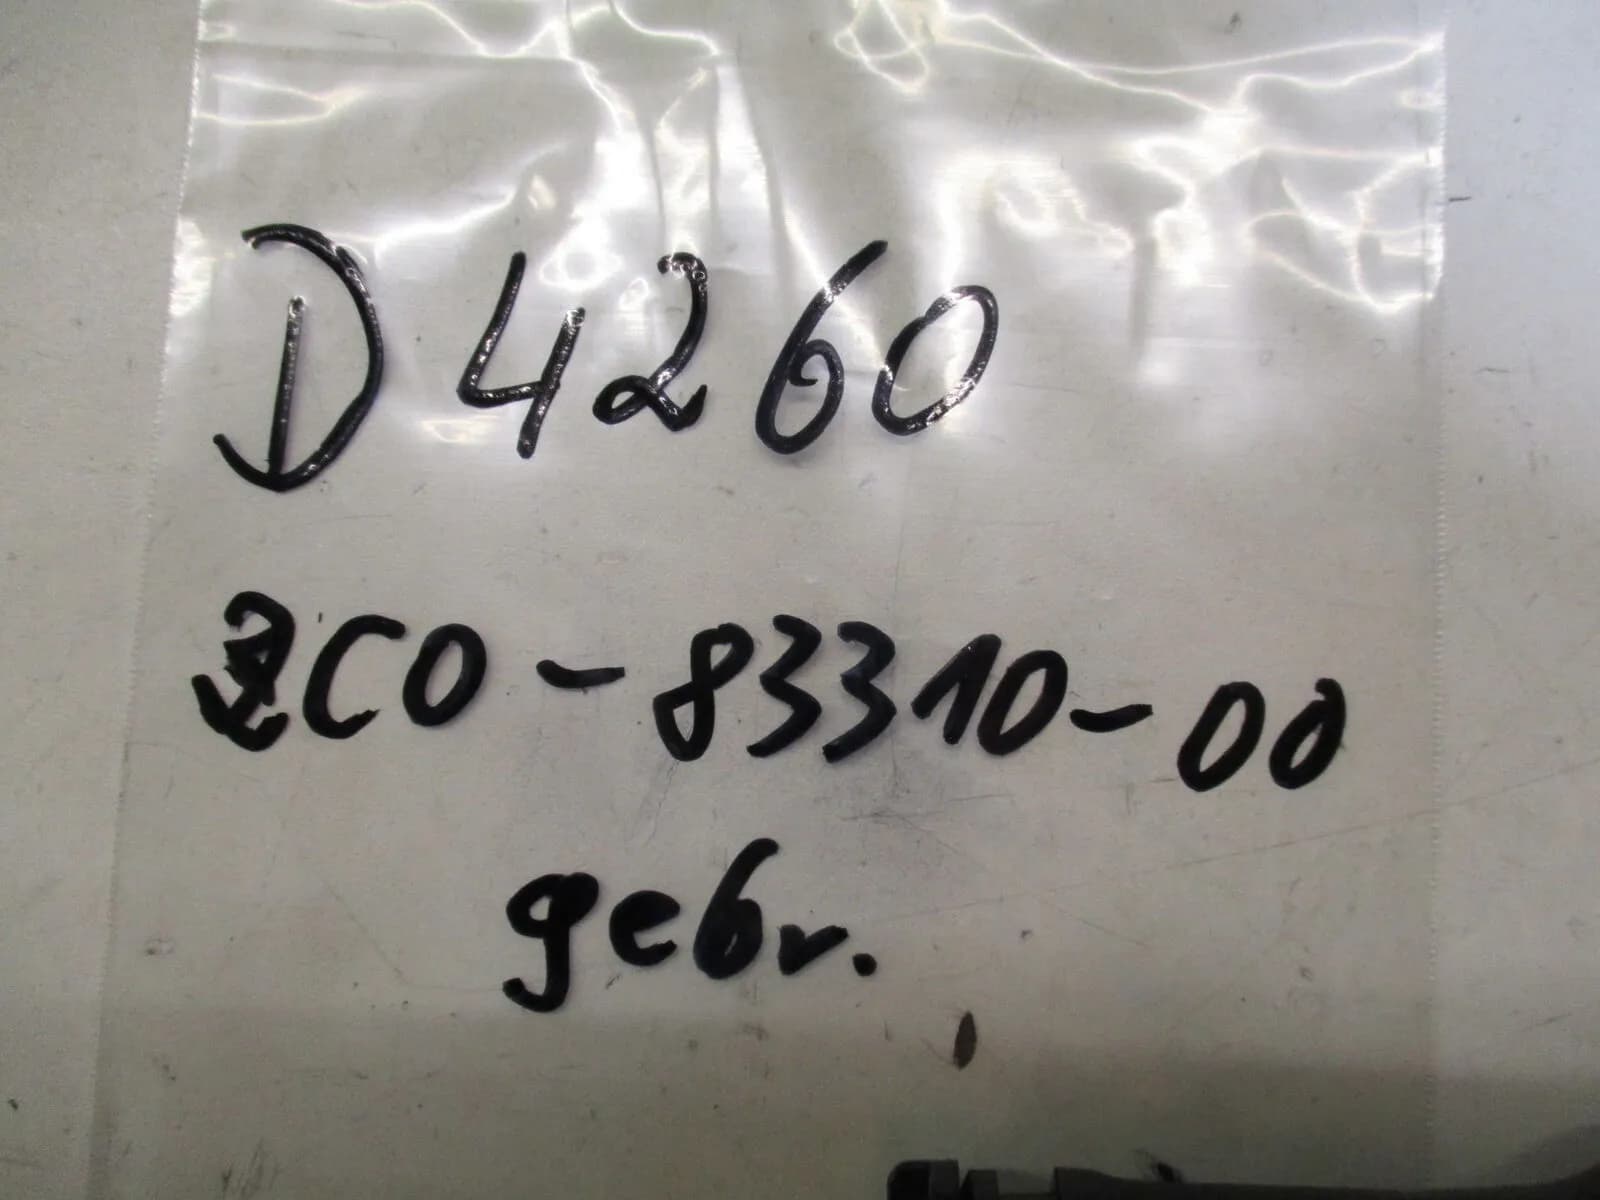 D4260
2C0-83310-00
gebr.